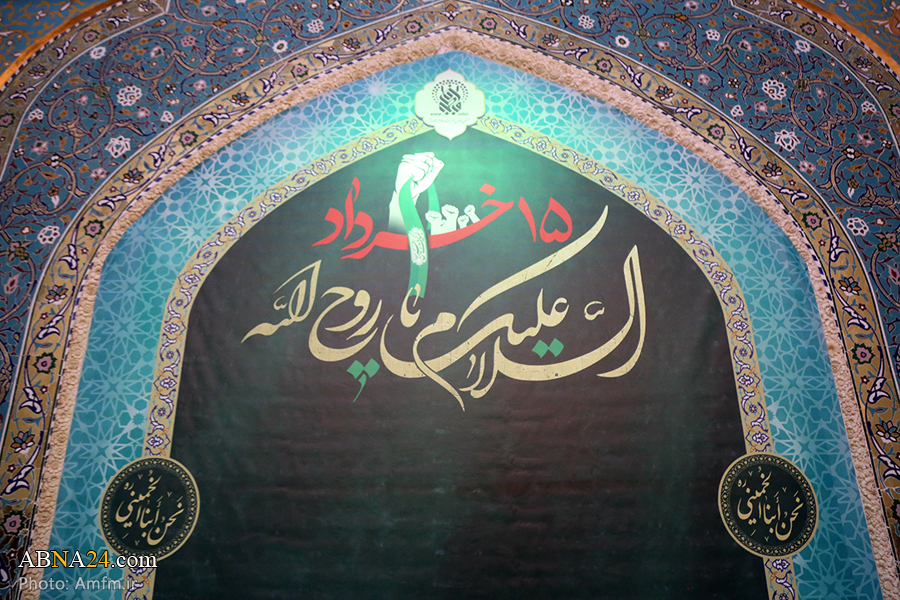 ۱۵ خرداد
السلام علیکم یا روح الله
نحن أبناء الخميني ره
نحن أبناء الخميني ره
ABNA24.com
Photo: Amfm.ir